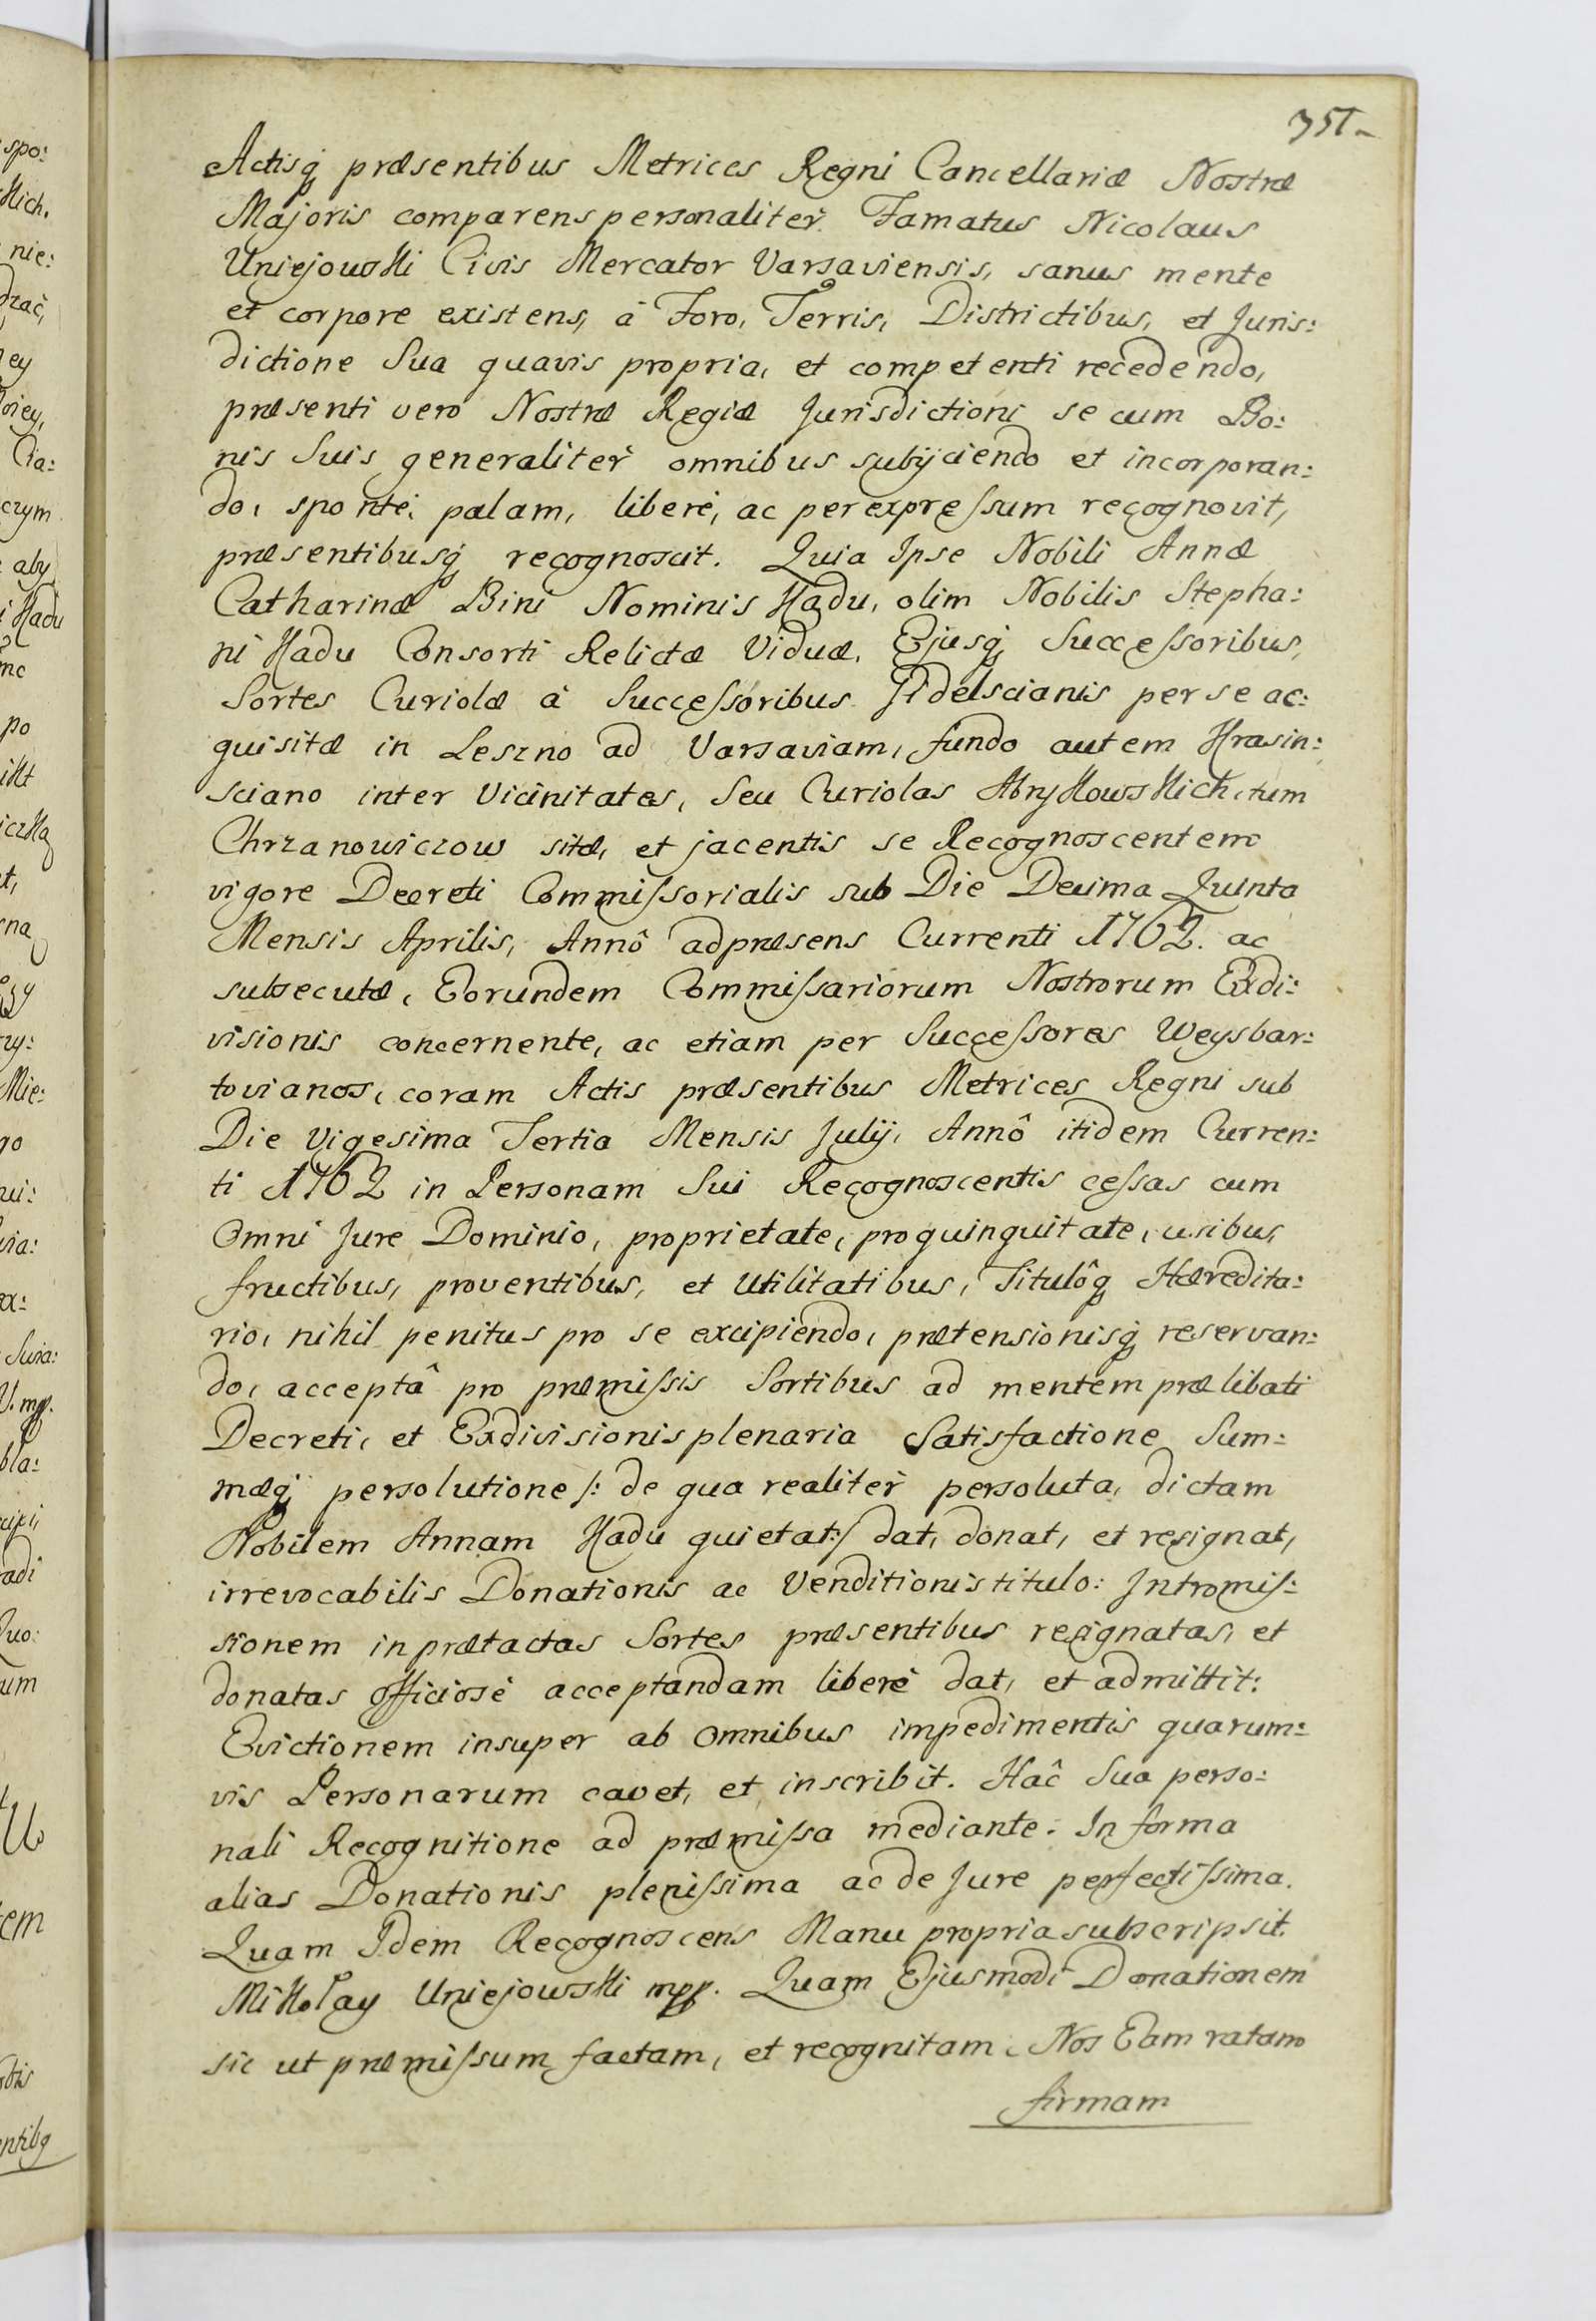 351
Actisq́ præsentibus Metrices Regni Cancellariæ Nostræ
Majoris comparens personaliter Famatus Nicolaus
Uniejowski Civis Mercator Varsaviensis, sanus mente
et corpore existens, à Foro, Terris, Districtibus, et Juris:
dictione Sua quavis propria, et competenti recedendo,
præsenti vero Nostræ Regiæ Jurisdictioni se cum Bo:
nis Suis generaliter omnibus subijciendo et incorporan:
do, sponte, palam, liberè, ac per expressum recognovit,
præsentibusq́ recognoscit. Quia Ipse Nobili Annæ
Catharinæ Bini Nominis Hadu, olim Nobilis Stepha:
ni Hadu Consorti Relictæ Viduæ, Ejusq́ Successoribus,
Sortes Curiolæ à Successoribus per se ac:
quisitæ in Leszno ad Varsaviam, fundo autem Krasin:
sciano inter Vicinitates, Seu Curiolas tum
Chrzanowiczow sitæ, et jacentis se Recognoscentem
vigore Decreti Commissorialis sub Die Decima Quinta
Mensis Aprilis, Annô ad præsens Currenti 1762. ac
subsecutæ, Eorundem Commissariorum Nostrorum Exdi:
visionis concernente, ac etiam per Successores Weysbar:
tovianos, coram Actis præsentibus Metrices Regni sub
Die Vigesima Tertia Mensis Julij, Annô itidem Curren:
ti 1762 in Personam Sui Recognoscentis cessas cum
Omni Jure Dominio, proprietate, proquinquitate, usibus,
fructibus, proventibus, et Utilitatibus, Titulôq́ Hæredita:
rio, nihil penitus pro se excipiendo, prætensionisq́ reservan:
do, acceptâ pro præmissis Sortibus ad mentem prælibati
Decreti, et Exdivisionis plenaria Satisfactione Sum:
mæq́ persolutione /: de qua realiter persoluta, dictam
Nobilem Annam Hadu quietat:/ dat, donat, et resignat,
irrevocabilis Donationis ac Venditionis titulo: Intromis:
sionem in prætactas Sortes præsentibus resignatas, et
donatas officiosè acceptandam liberè dat, et admittit:
Evictionem insuper ab Omnibus impedimentis quarum:
vis Personarum cavet, et inscribit. Hâc Sua perso:
nali Recognitione ad præmissa mediante. In forma
alias Donationis plenissima ac de Jure perfectissima.
Quam Idem Recognoscens Manu propria subscripsit.
Mikołay Uniejowski mpp. Quam Ejusmodi Donationem
sic ut præmissum factam, et recognitam, Nos Eam ratam
firmam